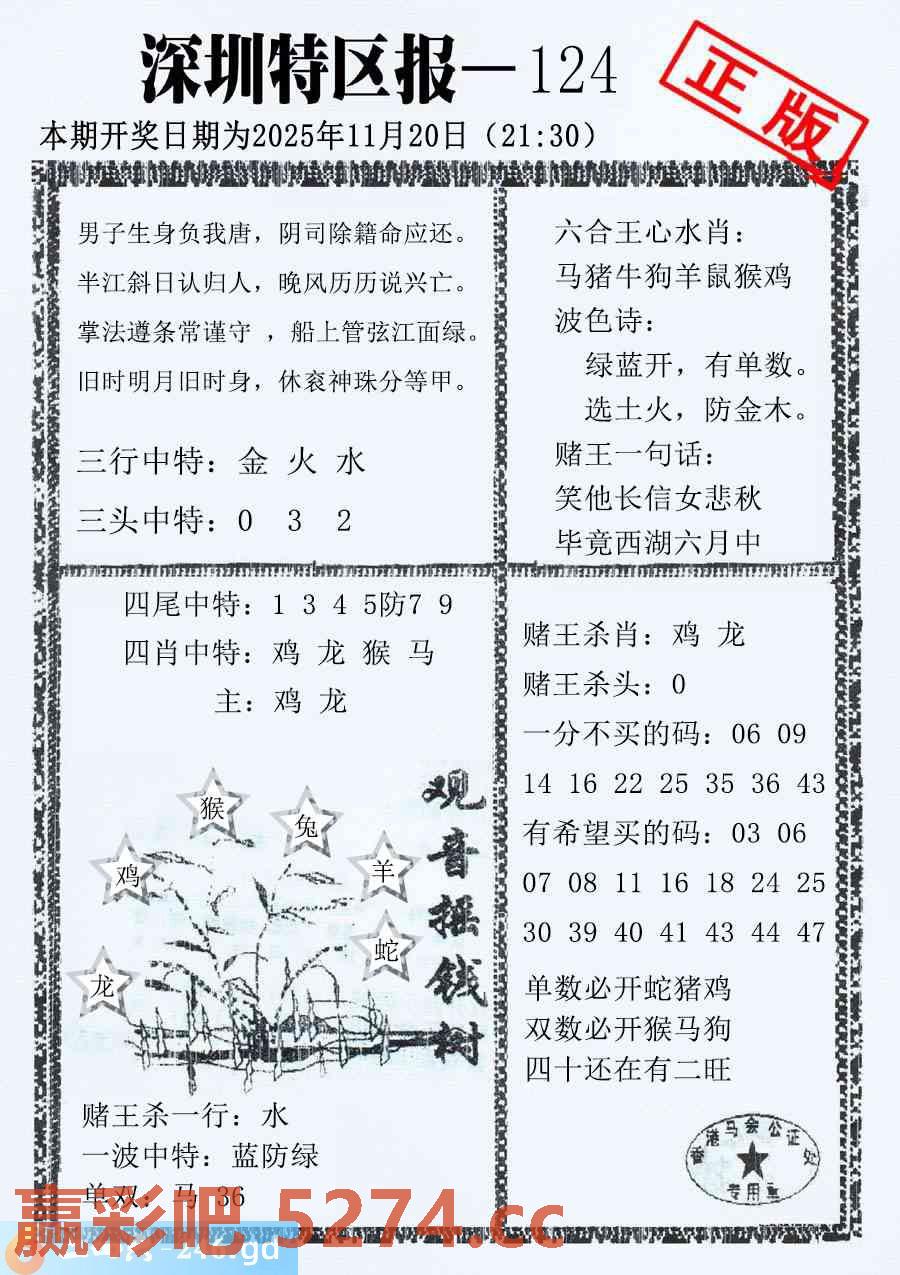 深圳特区报－124
正版
本期开奖日期为2025年11月20日（21:30）
男子生身负我唐，阴司除籍命应还。
半江斜日认归人，晚风历历说兴亡。
掌法遵条常谨守 ，船上管弦江面绿。
旧时明月旧时身，休衮神珠分等甲。
三行中特：金 火 水
三头中特：0 3 2
六合王心水肖：
马猪牛狗羊鼠猴鸡
波色诗：
绿蓝开，有单数。
选土火，防金木。
赌王一句话：
笑他长信女悲秋
毕竟西湖六月中
四尾中特：1 3 4 5防7 9
四肖中特：鸡 龙 猴 马
主：鸡 龙
观音摇钱树
猴
兔
鸡
羊
蛇
龙
赌王杀一行：水
一波中特：蓝防绿
单双：马 36
赌王杀肖：鸡 龙
赌王杀头：0
一分不买的码：06 09
14 16 22 25 35 36 43
有希望买的码：03 06
07 08 11 16 18 24 25
30 39 40 41 43 44 47
单数必开蛇猪鸡
双数必开猴马狗
四十还在有二旺
香港马会公证处
专用章
赢彩吧 5274.cc